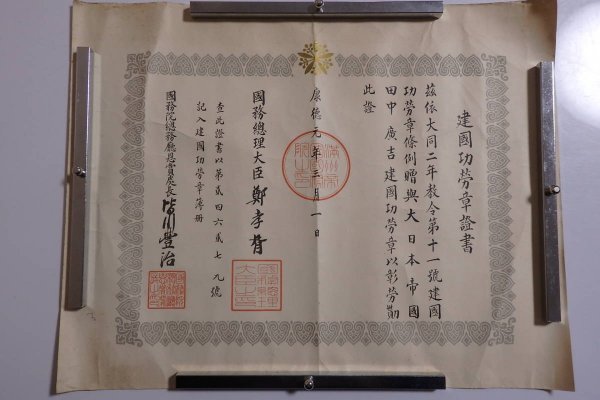 建國功勞章證書
茲依大同二年教令第十一號建國
功勞章條例贈與大日本帝國
田中廣吉建國功勞章以彰勞勩
此證
康德元年三月一日
國務總理大臣 鄭孝胥
查此證書以第貳四六貳七九號
記入建國功勞章簿冊
國務院總務廳恩賞處長 皆川豐治